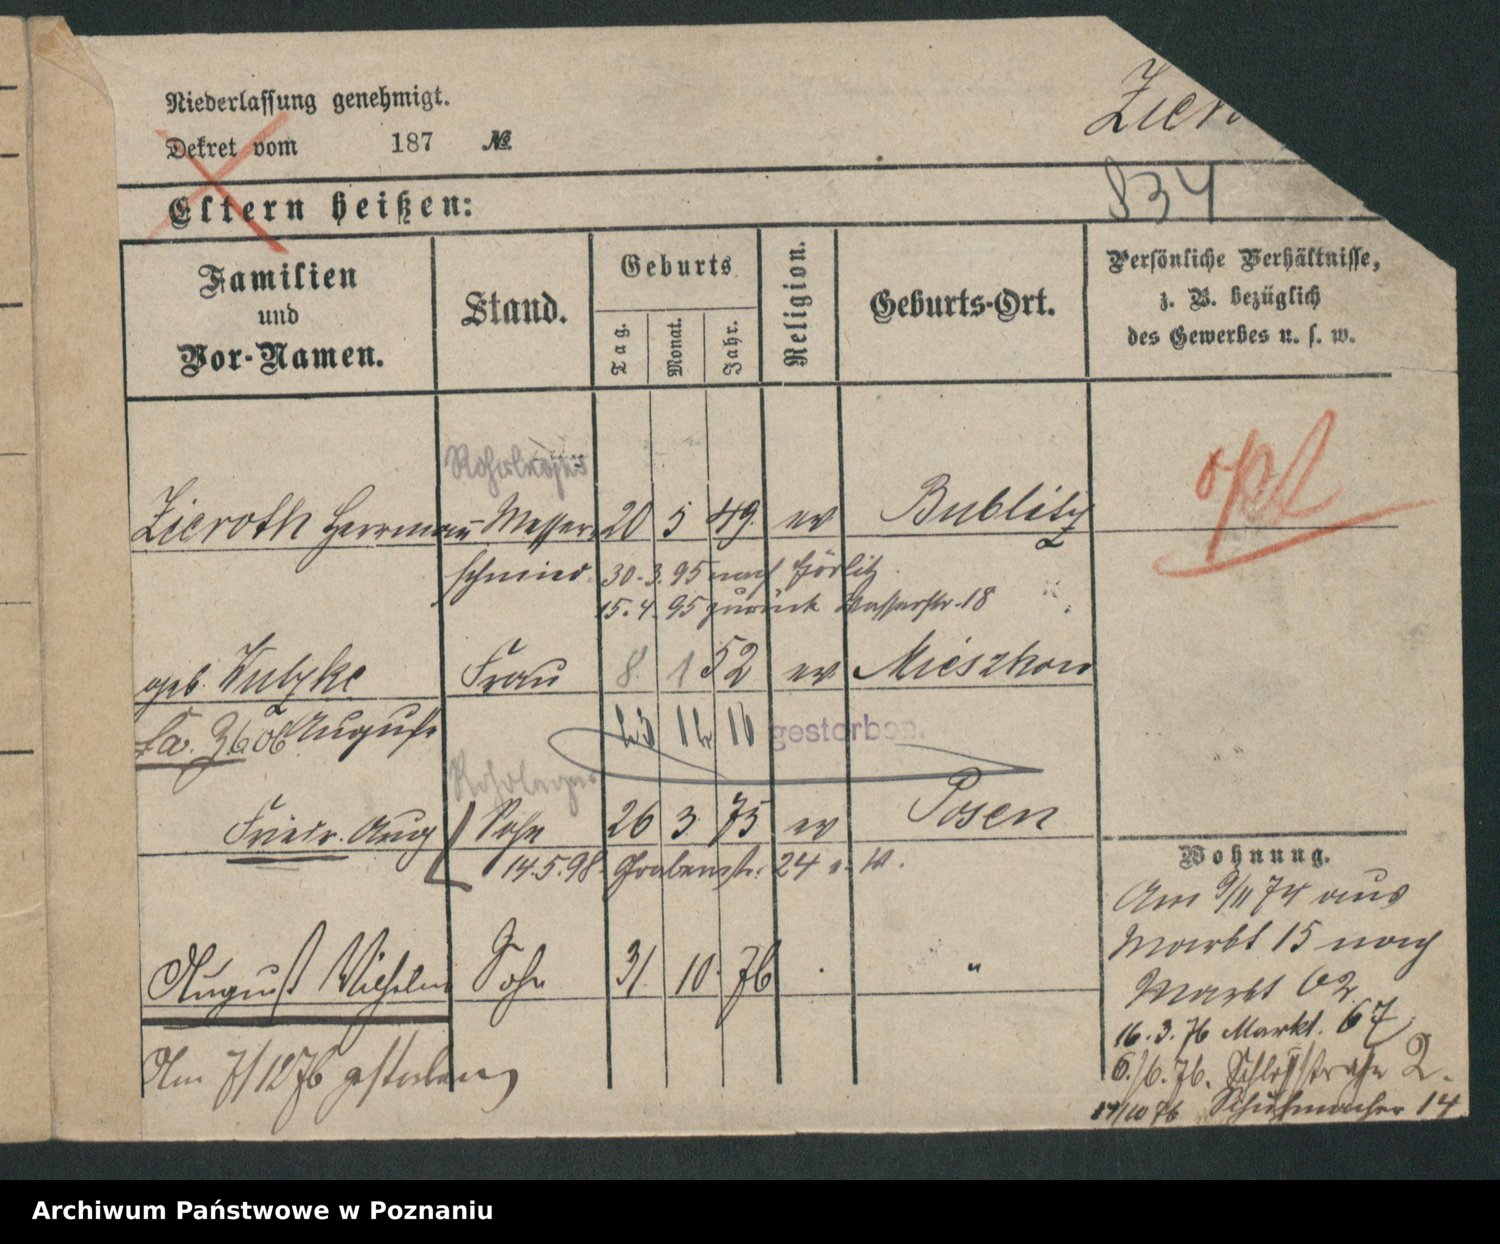 Niederlassung genehmigt.
Dekret vom 187 №
834
Eltern heißen:
Familien und Vor-Namen.
Stand.
Geburts
Tag.
Monat.
Jahr.
Religion.
Geburts-Ort.
Persönliche Verhältnisse,
z. B. bezüglich
des Gewerbes u. s. w.
Zieroth Herrmann Messer- 20 5 49. ev Bublitz
schmied. 30.3.95 nach Görlitz.
15.4.95 zurück Wasserstr. 18
geb. Wutzke Frau 8. 1 52 ev Mieszkow
Auguste 16 gestorben.
Friedr. Aug Sohn 26 3 75 ev Posen
14.5.98. Grabenstr. 24
August Wilhelm Sohn 31. 10. 76 "
Am 7/12 76 gestorben
Wohnung.
Am 9/11 74 aus
Markt 15 nach
Markt 62.
16.3.76 Markt. 67
6./6.76. Schloßstraße 2.
17/10 76 Schuhmacher 14
Archiwum Państwowe w Poznaniu